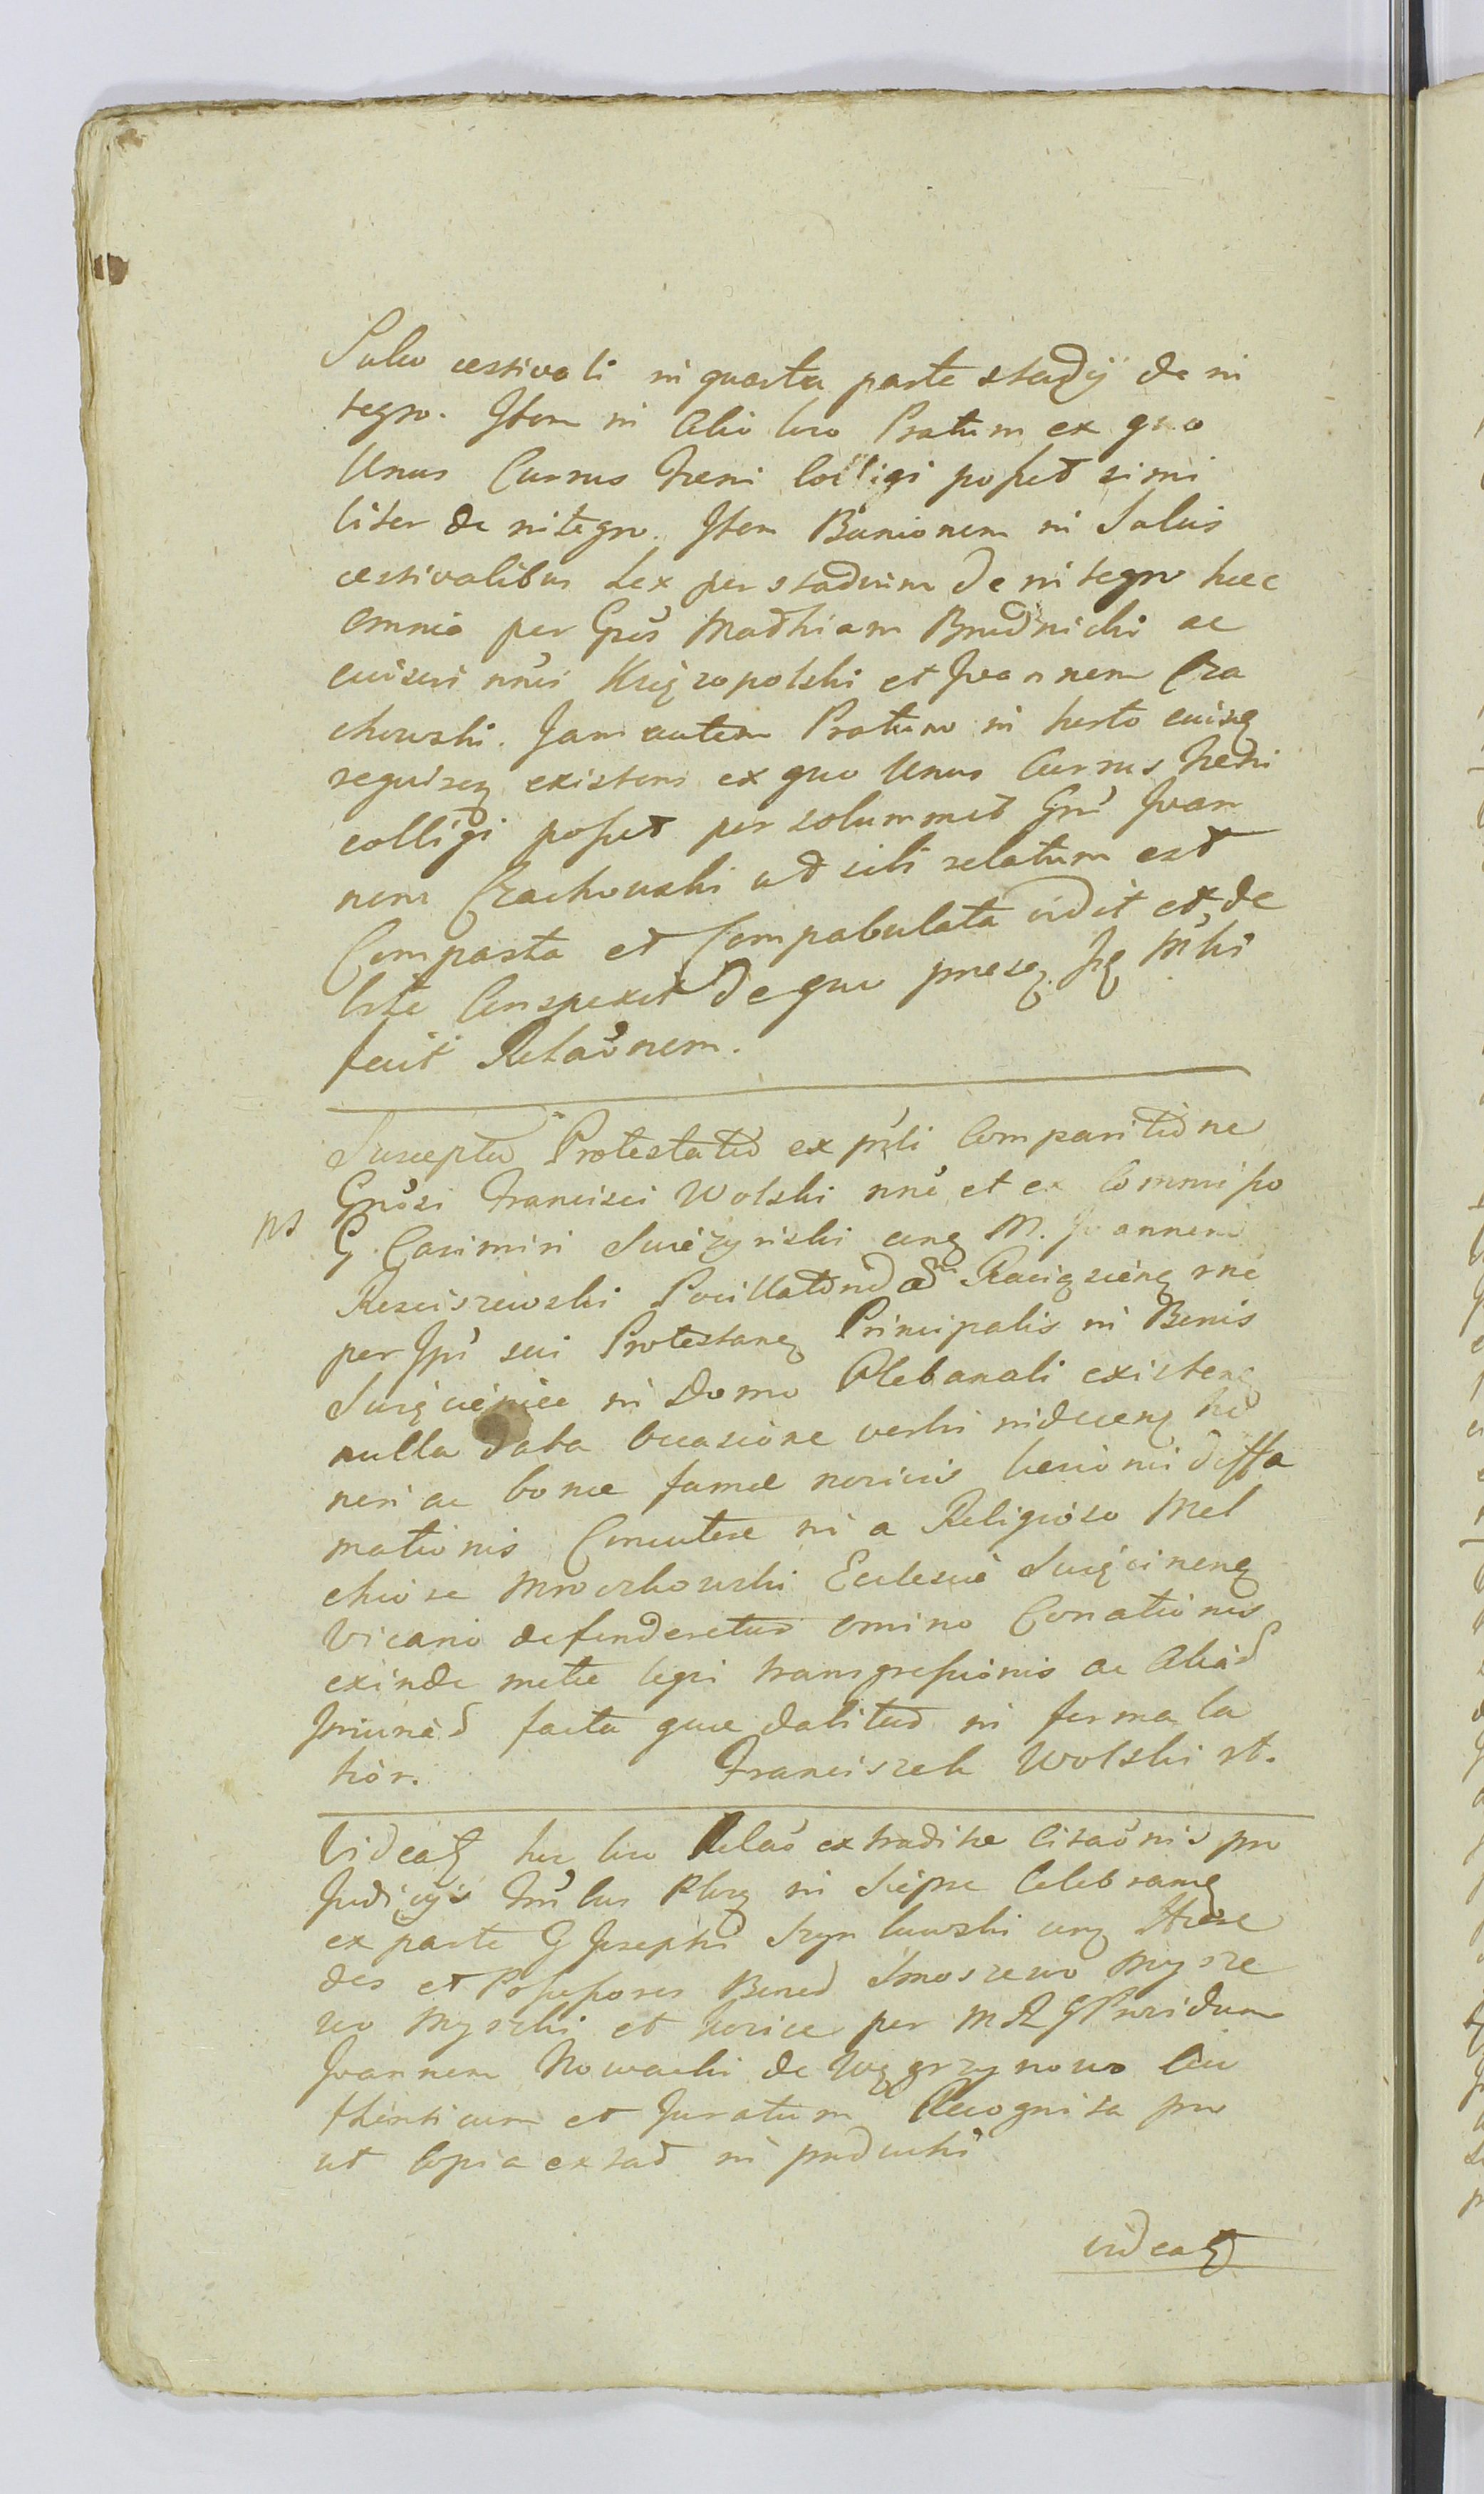 Salvo æstivali in quarta parte stadÿ de in
tegro. Item in Alio loco Pratum ex quo
Unus Currus Fæni Colligi posset simi
liter de integro. Item Banionem in Salvis
æstivalibus sex per stadium de integro hæc
omnia per Gnos Mathiam Brudnicki ac
Krajzopolski et Joannem Cza
chowski. Jam autem Pratum in horto eiusq
existens ex quo Unus Currus Fæni
colligi posset per solummet Gnu Joan
nem Czachowski ut sibi relatum est
Comparta et Compabulata vidit et de
bite Conspexit de quo præsq mihi
fecit Relaōnem.
Suscepta Protestatio ex prli Comparitione
Gnosi Francisci Wolski nne et ex Commisso
ps G. Casimiri cong M. Joannem
Resciszewski Pocillatorid Raciązieng
per Ipm sui Protestang Principalis in Bonis
in Domo Plebanali existeng
nulla data Occasione verbi inducenq ho
nori ac bonæ famæ noxiis diffa
mationis Concutere ni a Religioso Mel
chiore Mroczkowski Ecclesiæ
Vicario defenderetur omnino Conationis
exinde metæ legis transgressionis ac Aliād
Iniuriād facta quæ dabitur in forma la
tiōr. Franciszek Wolski rt.
Videatʒ hic loco Relaō extraditæ Citaōnis pro
Judicÿs Tribus Plocʒ in Sierpc Celebranq
ex parte G Josephi conʒ Hære
des et Possessores Bonod Smoszewo Mysze
wo Myszki et per M R G Providum
Joannem Nowacki de Węgrzynowo Au
thenticum et Juratum Recognita pro
ut Copia extat in producti
videatʒ